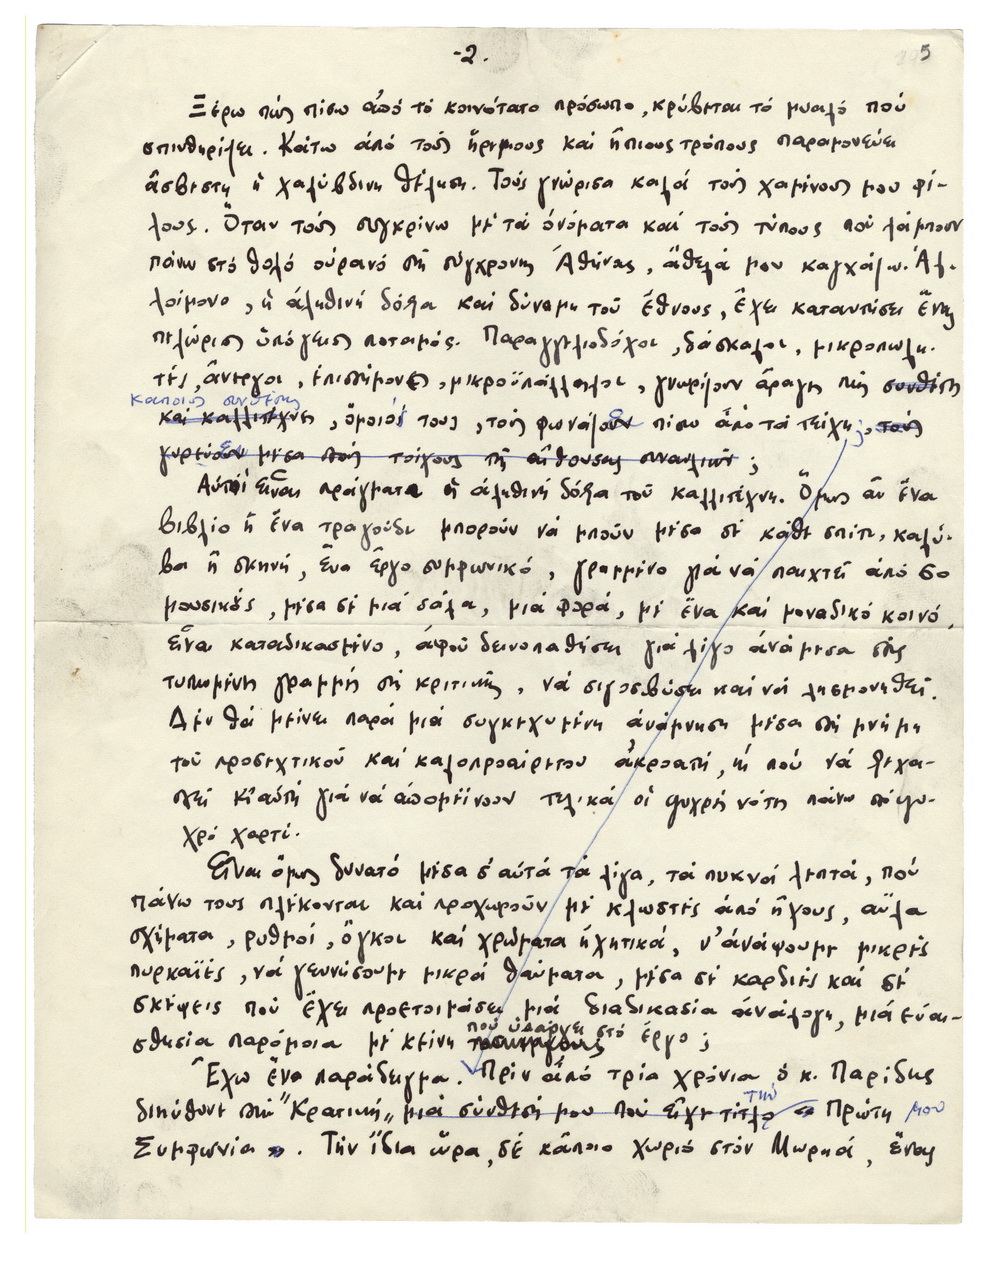 -2.
5
Ξέρω πώς πίσω ἀπό τό κοινότατο πρόσωπο, κρύβεται τό μυαλό πού
σπινθηρίζει. Κάτω ἀπό τούς ἤρεμους καί ἤπιους τρόπους παραμονεύει
ἄσβεστη ἡ χαλύβδινη θέληση. Τούς γνώρισα καλά τούς χαμένους μου φί-
λους. Ὅταν τούς συγκρίνω μέ τά ὀνόματα καί τούς τύπους πού λάμπουν
πάνω στό θολό οὐρανό τῆς σύγχρονης Ἀθήνας, ἄθελά μου καγχάζω. Ἀλ-
λοίμονο, ἡ ἀληθινή δόξα καί δύναμη τοῦ ἔθνους, ἔχει καταντήσει ἕνας
πελώριος ὑπόγειος ποταμός. Παραγγελιοδόχοι, δάσκαλοι, μικροπωλη-
τές, ἄνεργοι, ἐπιστήμονες, μικροϋπάλληλοι, γνωρίζουν ἄραγε πώς συνθέτης
κάποιος συνθέτης
καί καλλιτέχνης, ὅμοιός τους, τούς φωνάζει πίσω ἀπό τά τείχη; τούς
γυρεύει μέσα στούς τοίχους τῆς αἴθουσας συναυλιῶν;
Αὐτή εἶναι πράγματι ἡ ἀληθινή δόξα τοῦ καλλιτέχνη. Ὅμως ἄν ἕνα
βιβλίο ἤ ἕνα τραγούδι μποροῦν νά μποῦν μέσα σέ κάθε σπίτι, καλύ-
βα ἤ σκηνή, ἕνα ἔργο συμφωνικό, γραμμένο γιά νά παιχτεῖ ἀπό 50
μουσικούς, μέσα σέ μιά σάλα, μιά φορά, μέ ἕνα καί μοναδικό κοινό,
εἶναι καταδικασμένο, ἀφοῦ δεινοπαθήσει γιά λίγο ἀνάμεσα στίς
τυπωμένες γραμμές τῆς κριτικῆς, νά σιγοσβύσει καί νά λησμονηθεῖ.
Δέν θά μείνει παρά μιά συγκεχυμένη ἀνάμνηση μέσα στή μνήμη
τοῦ προσεχτικοῦ καί καλοπροαίρετου ἀκροατή, ὥς πού νά ξεχα-
στεῖ κι' αὐτή γιά νά ἀπομείνουν τελικά οἱ ψυχρές νότες πάνω στό ψυ-
χρό χαρτί.
Εἶναι ὅμως δυνατό μέσα σ' αὐτά τά λίγα, τά πυκνά λεπτά, πού
πάνω τους πλέκονται καί προχωροῦν μέ κλωστές ἀπό ἤχους, ἄϋλα
σχήματα, ρυθμοί, ὄγκοι καί χρώματα ἠχητικά, ν' ἀνάψουμε μικρές
πυρκαϊές, νά γεννήσουμε μικρά θαύματα, μέσα σέ καρδιές καί σέ
σκέψεις πού ἔχει προετοιμάσει μιά διαδικασία ἀνάλογη, μιά εὐαι-
σθησία παρόμοια μέ κείνη πού ὑπάρχει στό ἔργο;
Ἔχω ἕνα παράδειγμα. Πρίν ἀπό τρία χρόνια ὁ κ. Παρίδης
διεύθυνε στήν "Κρατική" μιά σύνθεσή μου πού εἶχε τίτλο τήν « Πρώτη μου
Συμφωνία ». Τήν ἴδια ὥρα, σέ κάποιο χωριό στόν Μωρηά, ἕνας